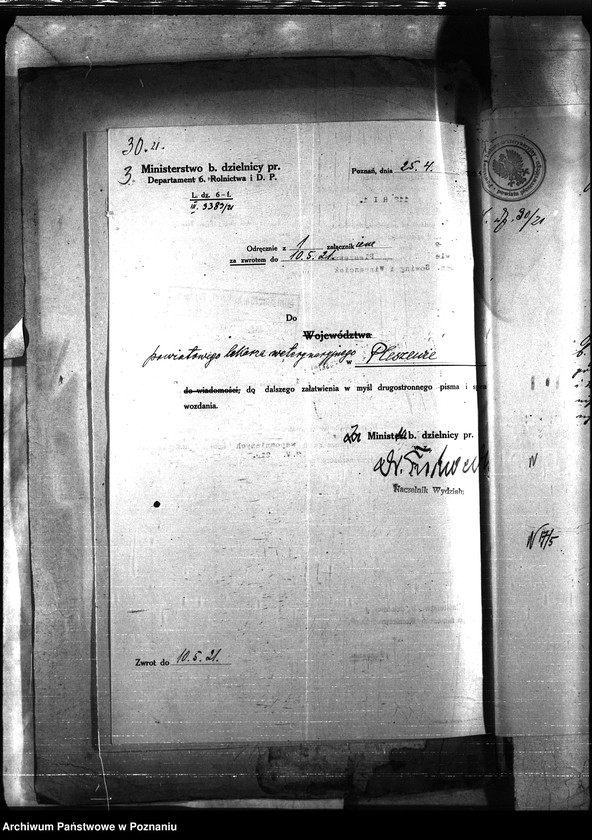 30.21.
3. Ministerstwo b. dzielnicy pr.
Departament 6. Rolnictwa i D. P.
L. dz. 6-I.
3383/21
Poznań, dnia 25.4.
Odręcznie z 1 załącznikiem
za zwrotem do 10.5.21.
Do
Województwa
powiatowego lekarza weterynaryjnego w Pleszewie
do wiadomości, do dalszego załatwienia w myśl drugostronnego pisma i spra
wozdania.
Za Ministra b. dzielnicy pr.
Dr.
Naczelnik Wydział
Zwrot do 10.5.21.
30/21
N
N 17/5
Archiwum Państwowe w Poznaniu